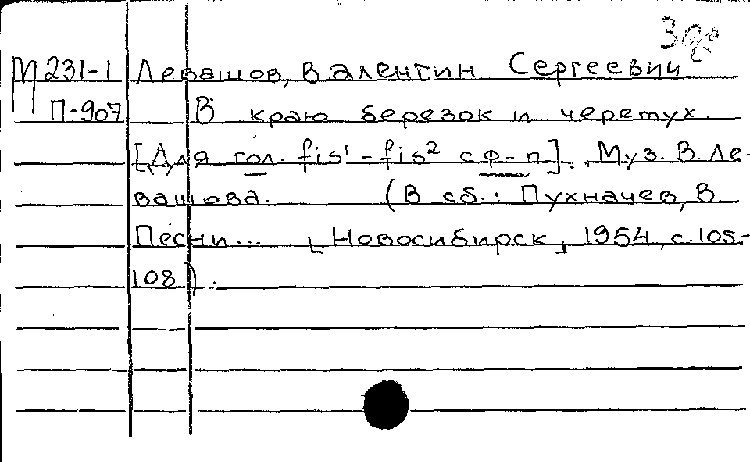 М 231-1 Левашов, Валентин Сергеевич
П-907 В краю березок и черемух.
[Для гол. fis¹-fis² с ф-п]. Муз. В. Ле-
вашова. (В сб.: Пухначев, В
Песни... [Новосибирск], 1954, с. 105-
108).